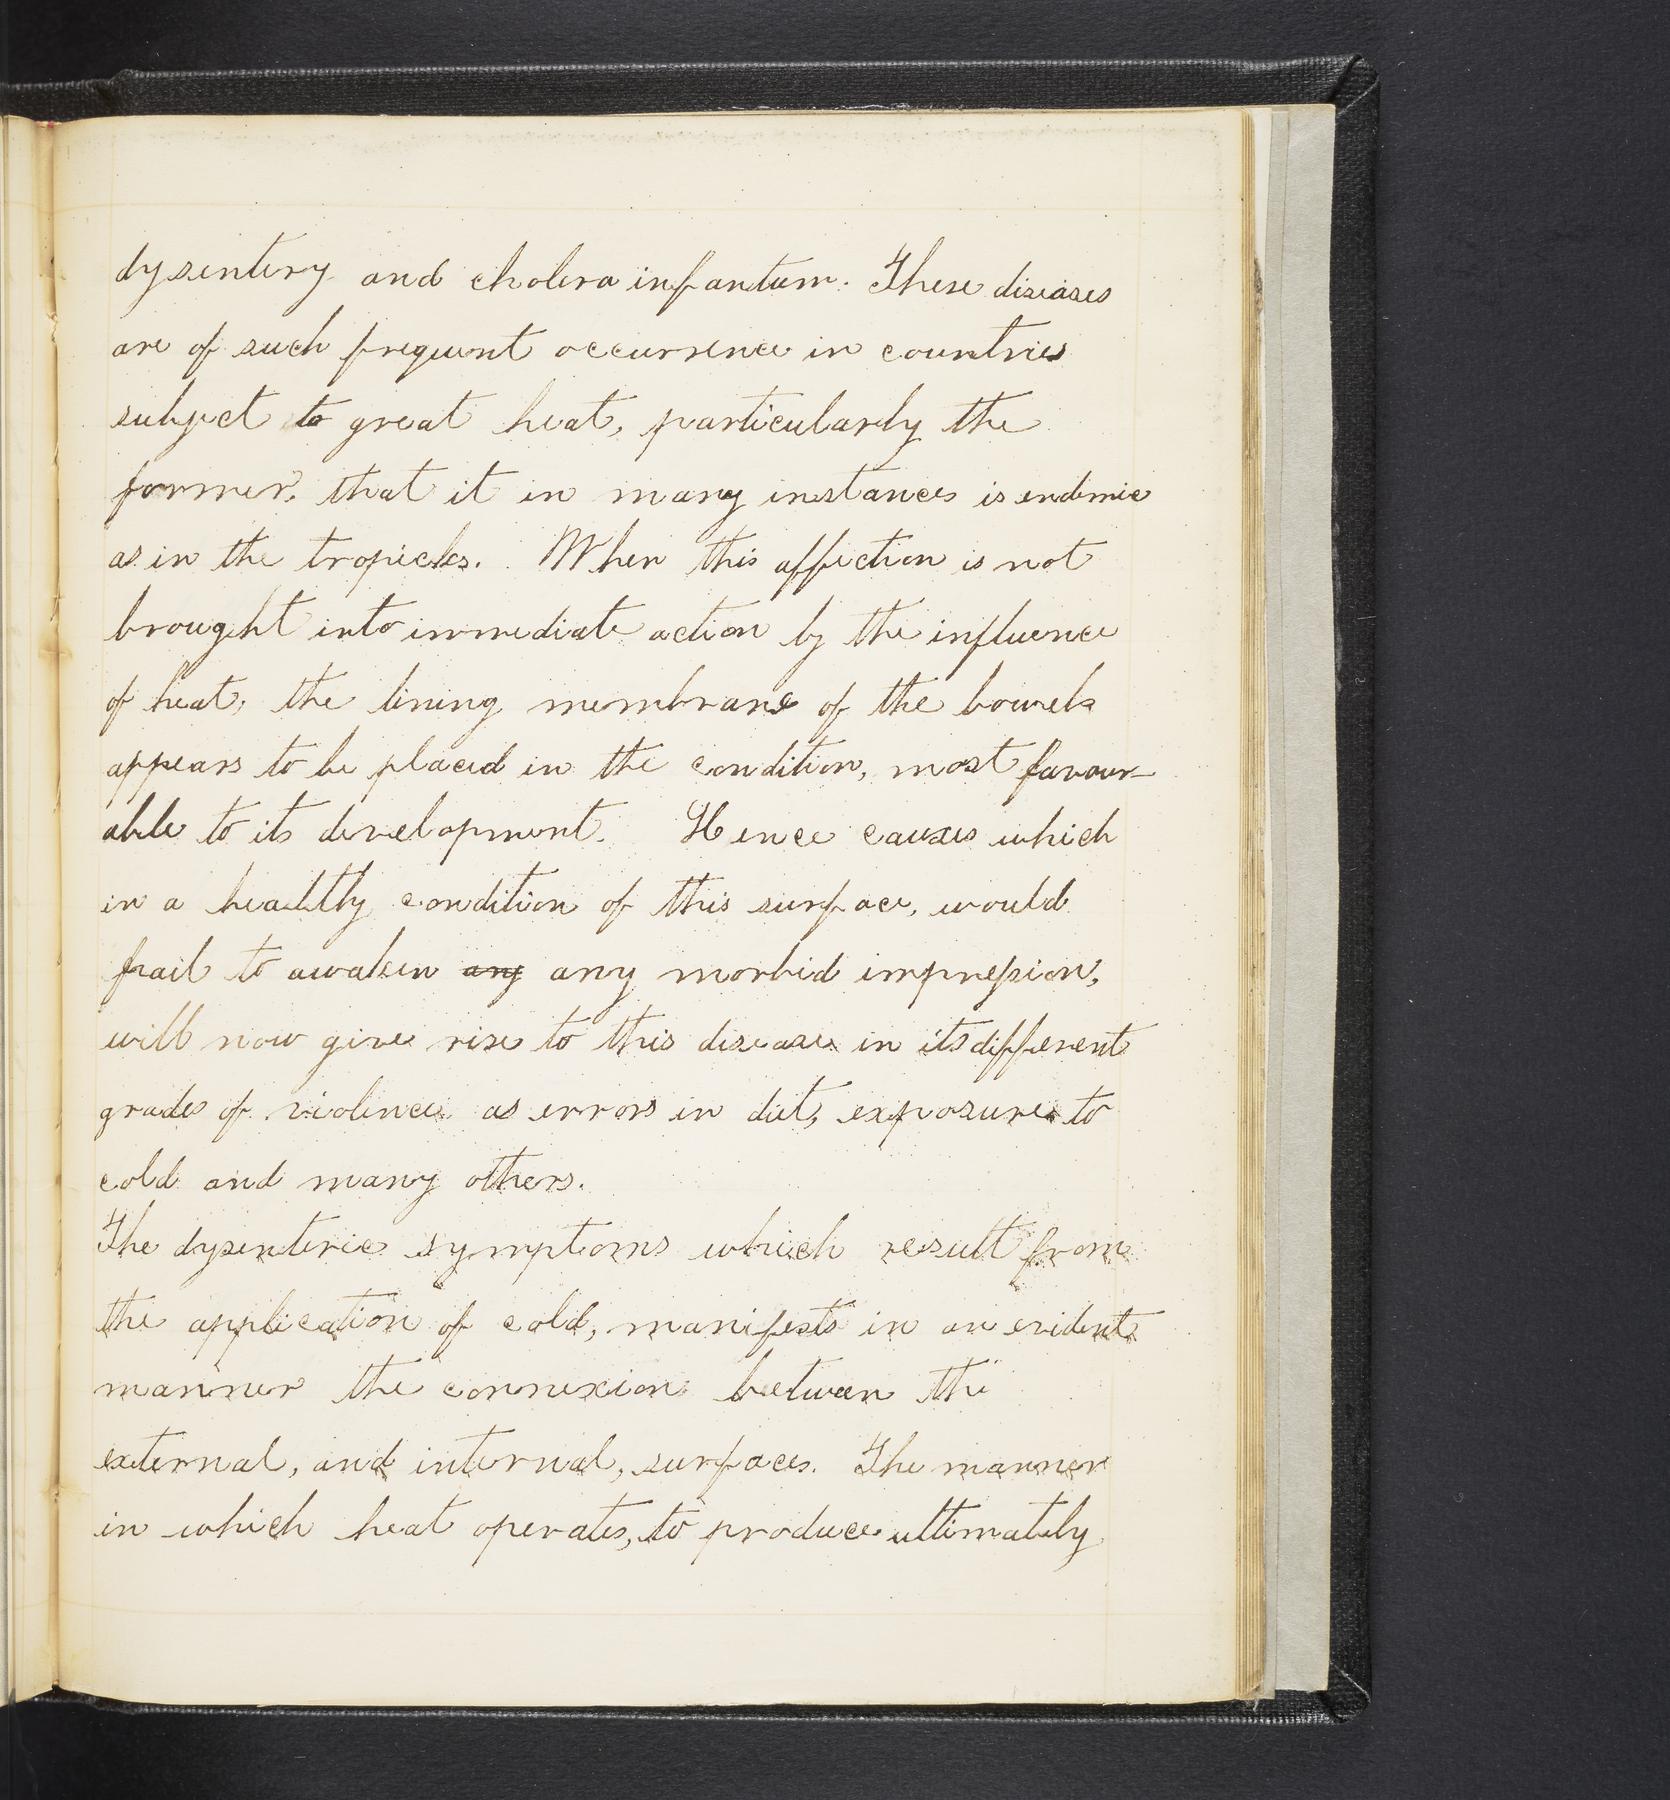 dysentery and cholera infantum. These diseases
are of such frequent occurrence in countries
subject to great heat, particularly the
former, that it in many instances is endemic
as in the tropicks. When this affection is not
brought into immediate action by the influence
of heat, the lining membrane of the bowels
appears to be placed in the condition, most favour-
able to its development. Hence causes which
in a healthy condition of this surface, would
fail to awaken any any morbid impression,
will now give rise to this disease in its different
grades of violence as errors in diet, exposure to
cold and many others.
The dysenteric symptoms which result from
the application of cold, manifests in an evident
manner the connexion between the
external, and internal, surfaces. The manner
in which heat operates, to produce ultimately